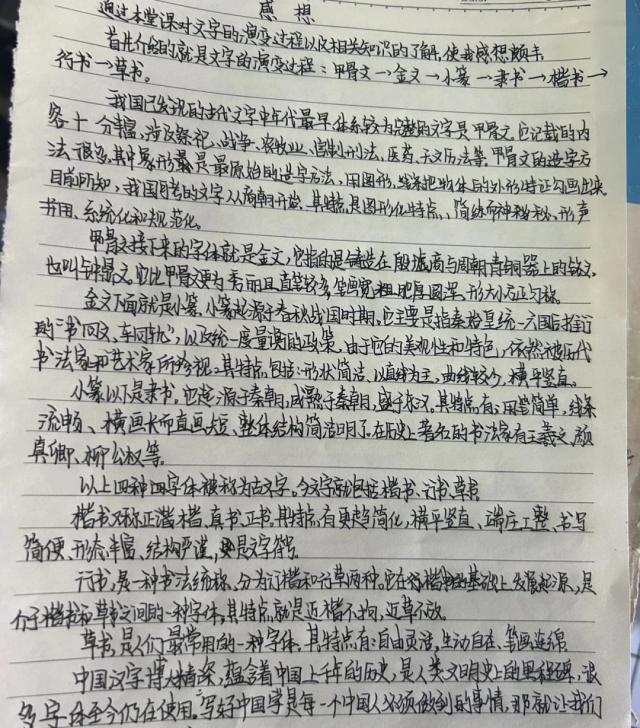 感想
通过本堂课对文字的演变过程以及相关知识的了解,使我感想颇丰
首先介绍的就是文字的演变过程:甲骨文→金文→小篆→隶书→楷书→
行书→草书。
我国已发现的古代文字中年代最早、体系较为完整的文字是甲骨文,它记载的内
容十分丰富,涉及祭祀、战争、农牧业、官制、刑法、医药、天文历法等,甲骨文的造字方
法很多,其中象形最是最原始的造字方法,用图形、线条把物体的外形特征勾画出来
目前所知,我国可考的文字从商朝开始,其特点是图形化特点,简练而神秘,形声
书用、系统化和规范化。
甲骨文接下来的字体就是金文,它指的是铸造在殷商与周朝青铜器上的铭文,
也叫钟鼎文,它比甲骨文更为秀丽且直笔较多,笔画宽粗肥厚圆浑,形大小方正匀称
金文下面就是小篆,小篆起源于春秋战国时期,它主要是指秦始皇统一六国后推行
的“书同文,车同轨”,以及统一度量衡的政策,由于它的美观性和特色,依然被历代
书法家和艺术家所珍视,其特点包括:形状简洁,以直线为主,曲线较少,横平竖直。
小篆以下是隶书,它起源于秦朝,成熟于秦朝,盛于东汉,其特点有:用笔简单,线条
流畅、横画长而直画短、整体结构简洁明了,在历史上著名的书法家有王羲之,颜
真卿、柳公权等。
以上四种四字体被称为古文字。今文字就包括楷书、行书、草书
楷书又称正楷,真书,正书,其特点有更趋简化,横平竖直、端庄工整、书写
简便、形态丰富、结构严谨,是文字符号
行书,是一种书法统称,分为行楷和行草两种,它在楷书的基础上发展起源,是
介于楷书和草书之间的一种字体,其特点就是近楷不拘,近草不放。
草书,是人们最常用的一种字体,其特点有:自由灵活,生动自在、笔画连绵
中国汉字博大精深,蕴含着中国上千年的历史,是人类文明史上的里程碑,很
多字体至今仍在使用,写好中国字是每一个中国人必须做到的事情,那就让我们